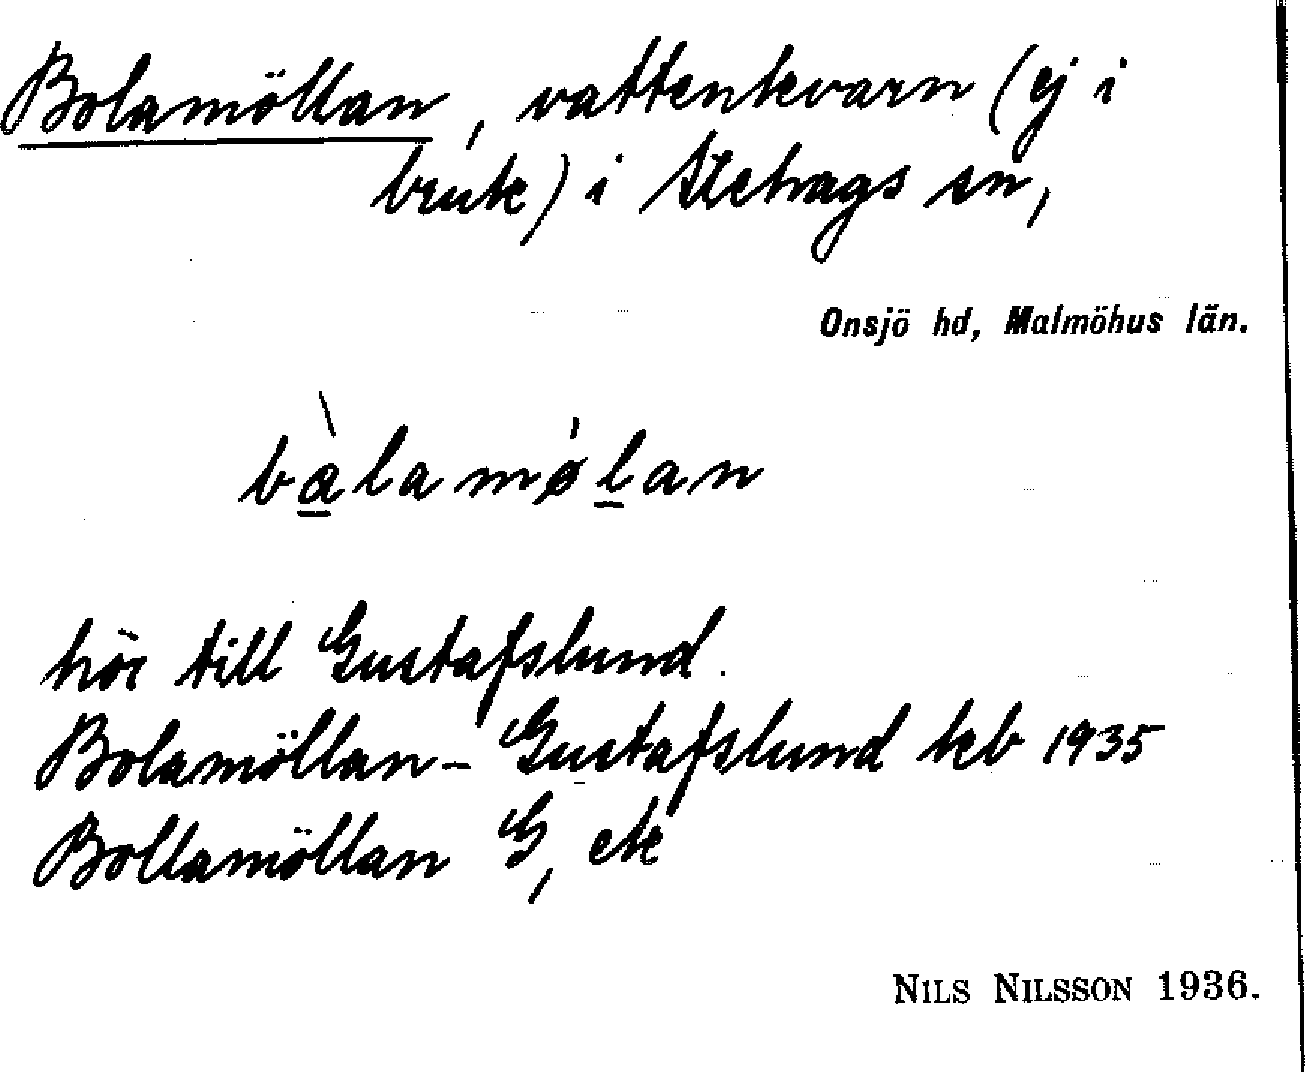 Bolamöllan, vattenkvarn (ej i
bruk) i Stehags sn,
Onsjö hd, Malmöhus län.
bàlamølan
hör till Gustafslund.
Bolamöllan - Gustafslund kb 1935
Bollamöllan G, ek
NILS NILSSON 1936.